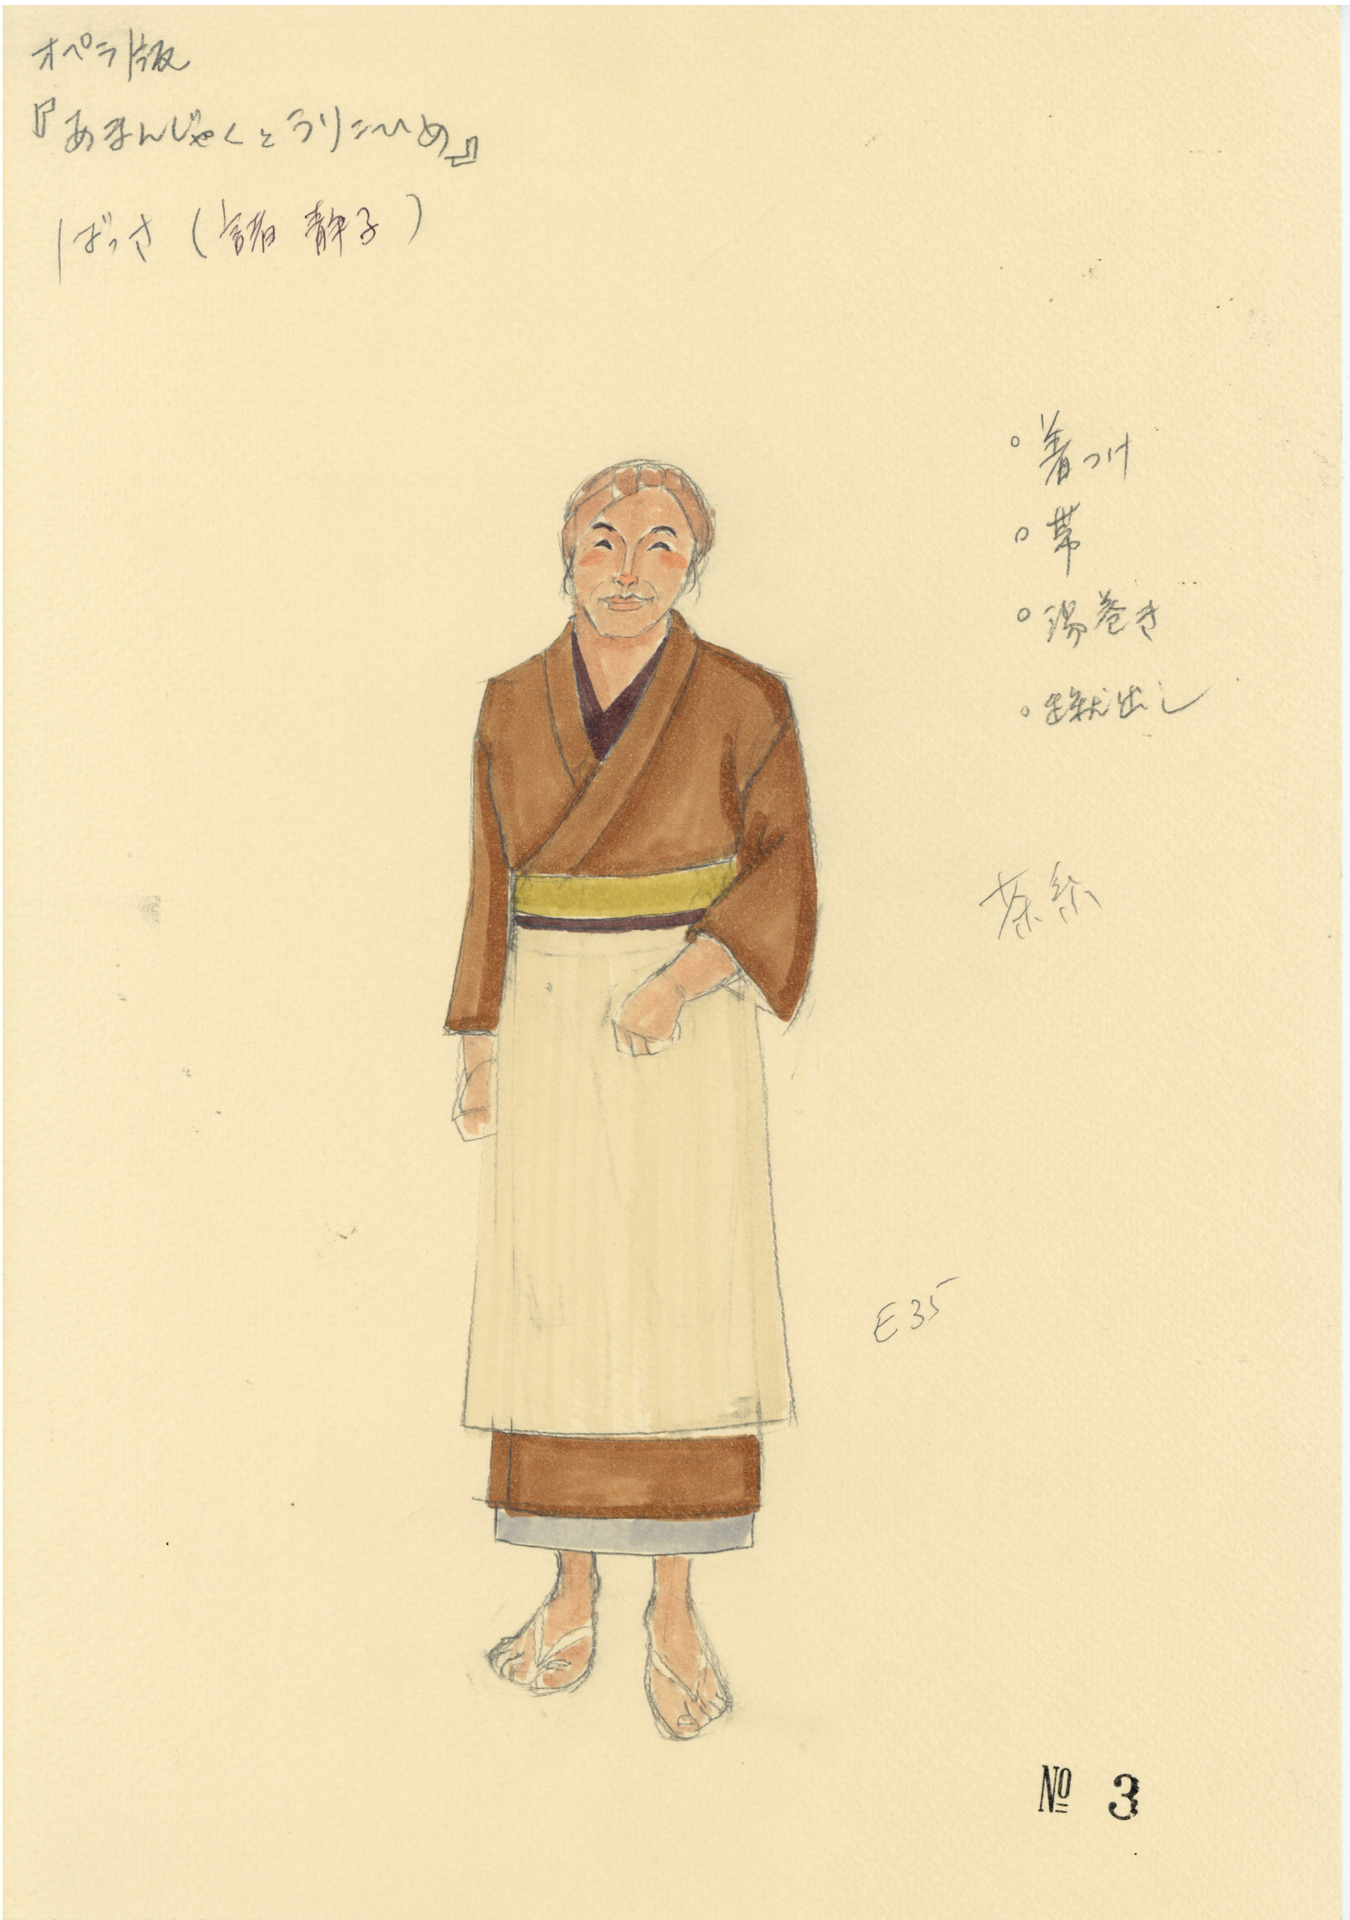 オペラ版
『あまんじゃくとうりこひめ』
ばっさ（諸 静子）
○着つけ
○帯
○湯巻き
○蹴出し
茶系
E35
№ 3